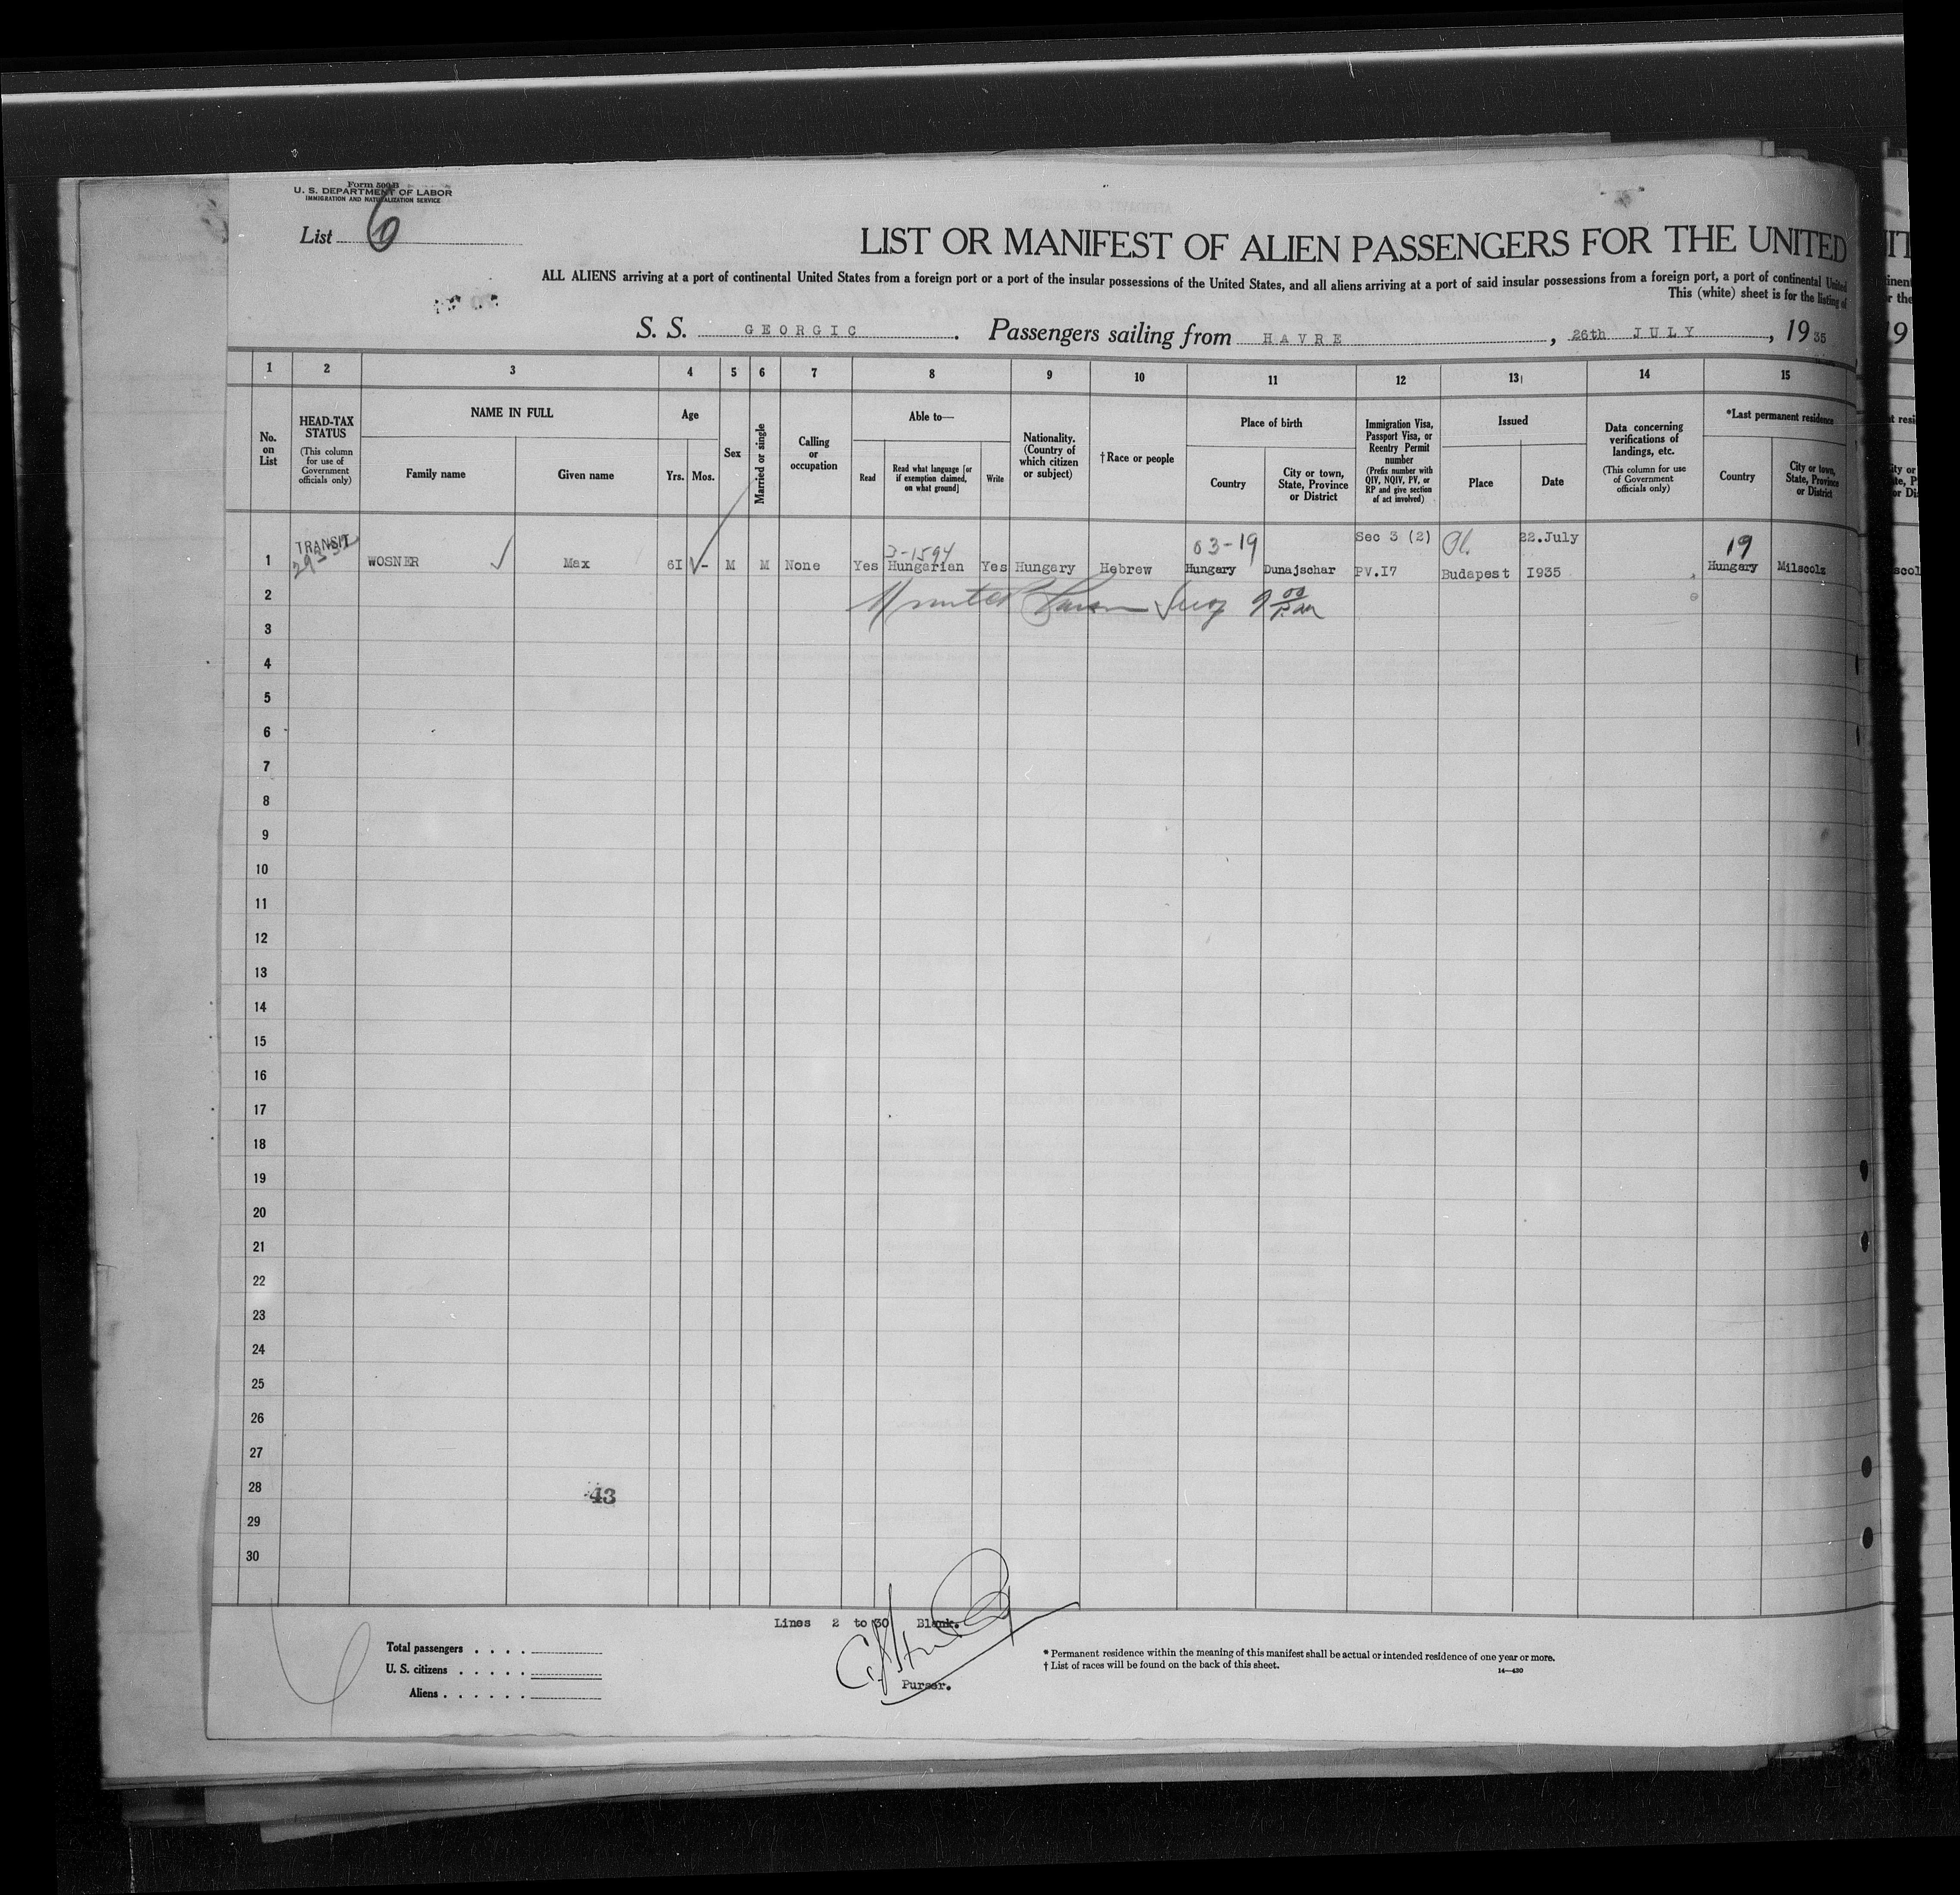 Form 500 B
U. S. DEPARTMENT OF LABOR
IMMIGRATION AND NATURALIZATION SERVICE
List 6
LIST OR MANIFEST OF ALIEN PASSENGERS FOR THE UNITED
ALL ALIENS arriving at a port of continental United States from a foreign port or a port of the insular possessions of the United States, and all aliens arriving at a port of said insular possessions from a foreign port, a port of continental United
This (white) sheet is for the listing of
S. S. GEORGIC. Passengers sailing from HAVRE, 26th JULY, 1935
1 2 3 4 5 6 7 8 9 10 11 12 13 14 15
No. on List
HEAD-TAX STATUS
(This column for use of Government officials only)
NAME IN FULL
Family name
Given name
Age
Yrs. Mos.
Sex
Married or single
Calling or occupation
Able to—
Read
Read what language [or if exemption claimed, on what ground]
Write
Nationality. (Country of which citizen or subject)
†Race or people
Place of birth
Country
City or town, State, Province or District
Immigration Visa, Passport Visa, or Reentry Permit number
(Prefix number with QIV, NQIV, PV, or RP and give section of act involved)
Issued
Place
Date
Data concerning verifications of landings, etc.
(This column for use of Government officials only)
*Last permanent residence
Country
City or town, State, Province or District
TRANSIT 3-1594 03-19 Sec 3 (2) 22.July 19
1 WOSNER Max 6I - M M None Yes Hungarian Yes Hungary Hebrew Hungary Dunajschar PV.I7 Budapest I935 Hungary Milscolz
2
3
4
5
6
7
8
9
10
11
12
13
14
15
16
17
18
19
20
21
22
23
24
25
26
27
28
43
29
30
Lines 2 to 30 Blank.
Purser.
Total passengers . . . .
U. S. citizens . . . . .
Aliens . . . . . .
* Permanent residence within the meaning of this manifest shall be actual or intended residence of one year or more.
† List of races will be found on the back of this sheet.
14—430